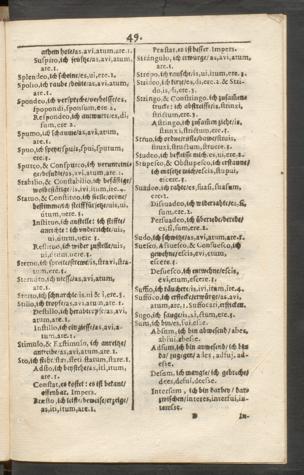 49.
athem hole/as,avi,atum,are.1.
Suspiro, ich seufftze/as,avi,atum,
are.1.
Splendeo, ich scheine/es,ui,ere.2.
Spolio, ich raube/beute/as,avi,atum,
are.1.
Spondeo, ich verspreche/verheisse/es,
spopondi, sponsum, ere.2.
Respondeo, ich antworte/es,di,
sum, ere.2.
Spumo, ich schaume/as,avi,atum,
are.1.
Spuo, ich speye/spuis, spui, sputum,
ere.3.
Spurco, & Conspurco, ich verunreinige
Stabilio, & Constabilio, ich befästige/
is,ivi,itum,ire.4.
Statuo, & Constituo, ich
bestimme/
utum, uere.3.
Instituo, ich
utum, uere.3.
Restituo, ich wider zustelle/uis,
ui, utum, uere.3.
Sterno, ich is, stravi, stratum,
ere.3.
Sternuto, ich niesse/as,avi,atum,
are.1.
Sterto, ich schnarche is,ui, & i, ere.3.
Stillo, ich tropfe/as,avi,atum,are.1.
Destillo, ich as,avi,
atum, are.1.
Instillo, ich as,avi,atum,
are.1.
Stimulo, & Exstimulo, ich anreitze/
antreibe/as,avi,atum,are.1.
Sto, ich stehe/stas, steti, statum, stare.1.
Adsto, ich beystehe/as,iti,itum,
are.1.
Constat, es kostet: es ist bekant/
offenbar. Impers.
Præsto, ich leiste/beweise/erzeige/
as,iti,itum,are.1.
Præstat, es ist besser. Impers.
Strangulo, ich erwürge/as,avi,atum,
are.1.
Strepo, ich rausche/is,ui,itum,ere.3.
Strideo, ich kirre/es,di,ere.2. & Strido,
is,di,ere.3.
Stringo, & Constringo, ich zusammen
strucke: ich abstreiffe/is, strinxi,
strictum, ere.3.
Astringo, ich zusammen ziehe/is,
strinxi, strictum, ere.3.
Struo, ich is,
struxi, structum, struere.3.
Studeo, ich befleisse mich/es,ui,ere.2.
Stupesco, & Obstupesco, ich erstaune/
ich is, stupui,
ere.3.
Suadeo, ich rahte/es, suasi, suasum,
ere.2.
Dissuadeo, ich widerrahte/es, si,
sum, ere.2.
Persuadeo, ich überrede/berede/
es, si, sum, ere.2.
Sudo, ich schwitze/as,avi,atum,are.1.
Suesco, Assuesco, & Consuesco, ich
gewehne/escis, evi, etum,
escere.3.
Desuesco, ich entwehne/escis,
evi, etum, escere.3.
Suffio, ich räuchere/is,ivi,itum,ire.4.
Suffoco, ich erstecke/erwürge/as,avi,
atum, are.1. Suffocari, ersticken.
Sugo, ich sauge/is,xi,ctum,ere.3.
Sum, ich bin/es, fui, esse.
Absum, ich bin abwesend/abes,
abfui, abesse.
Adsum, ich bin anwesend/ich bin
da/zugegen/ades, adfui, adesse.
Desum, ich mangle/ich gebreche/
dees, defui, deesse.
Intersum, ich bin darbey/darzwischen/
interes, interfui, interesse.
D
In-